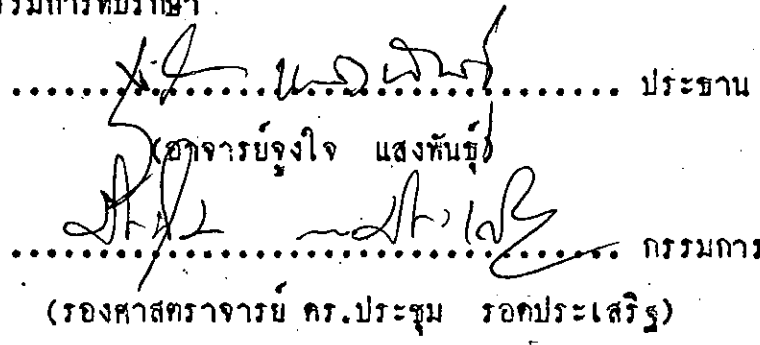 กรรมการที่ปรึกษา
........................................ ประธาน
(อาจารย์จูงใจ แสงพันธุ์)
........................................ กรรมการ
(รองศาสตราจารย์ ดร.ประชุม รอดประเสริฐ)